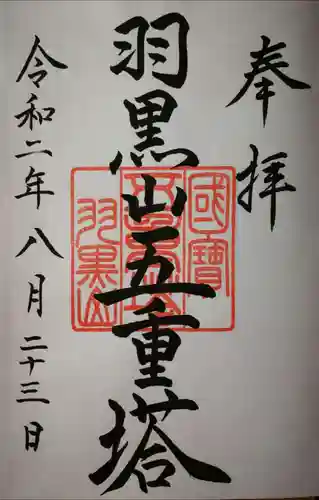 奉拝
羽黒山五重塔
國寶
羽黒山
令和二年八月二十三日